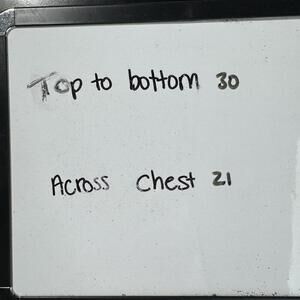 Top to bottom 30
Across Chest 21